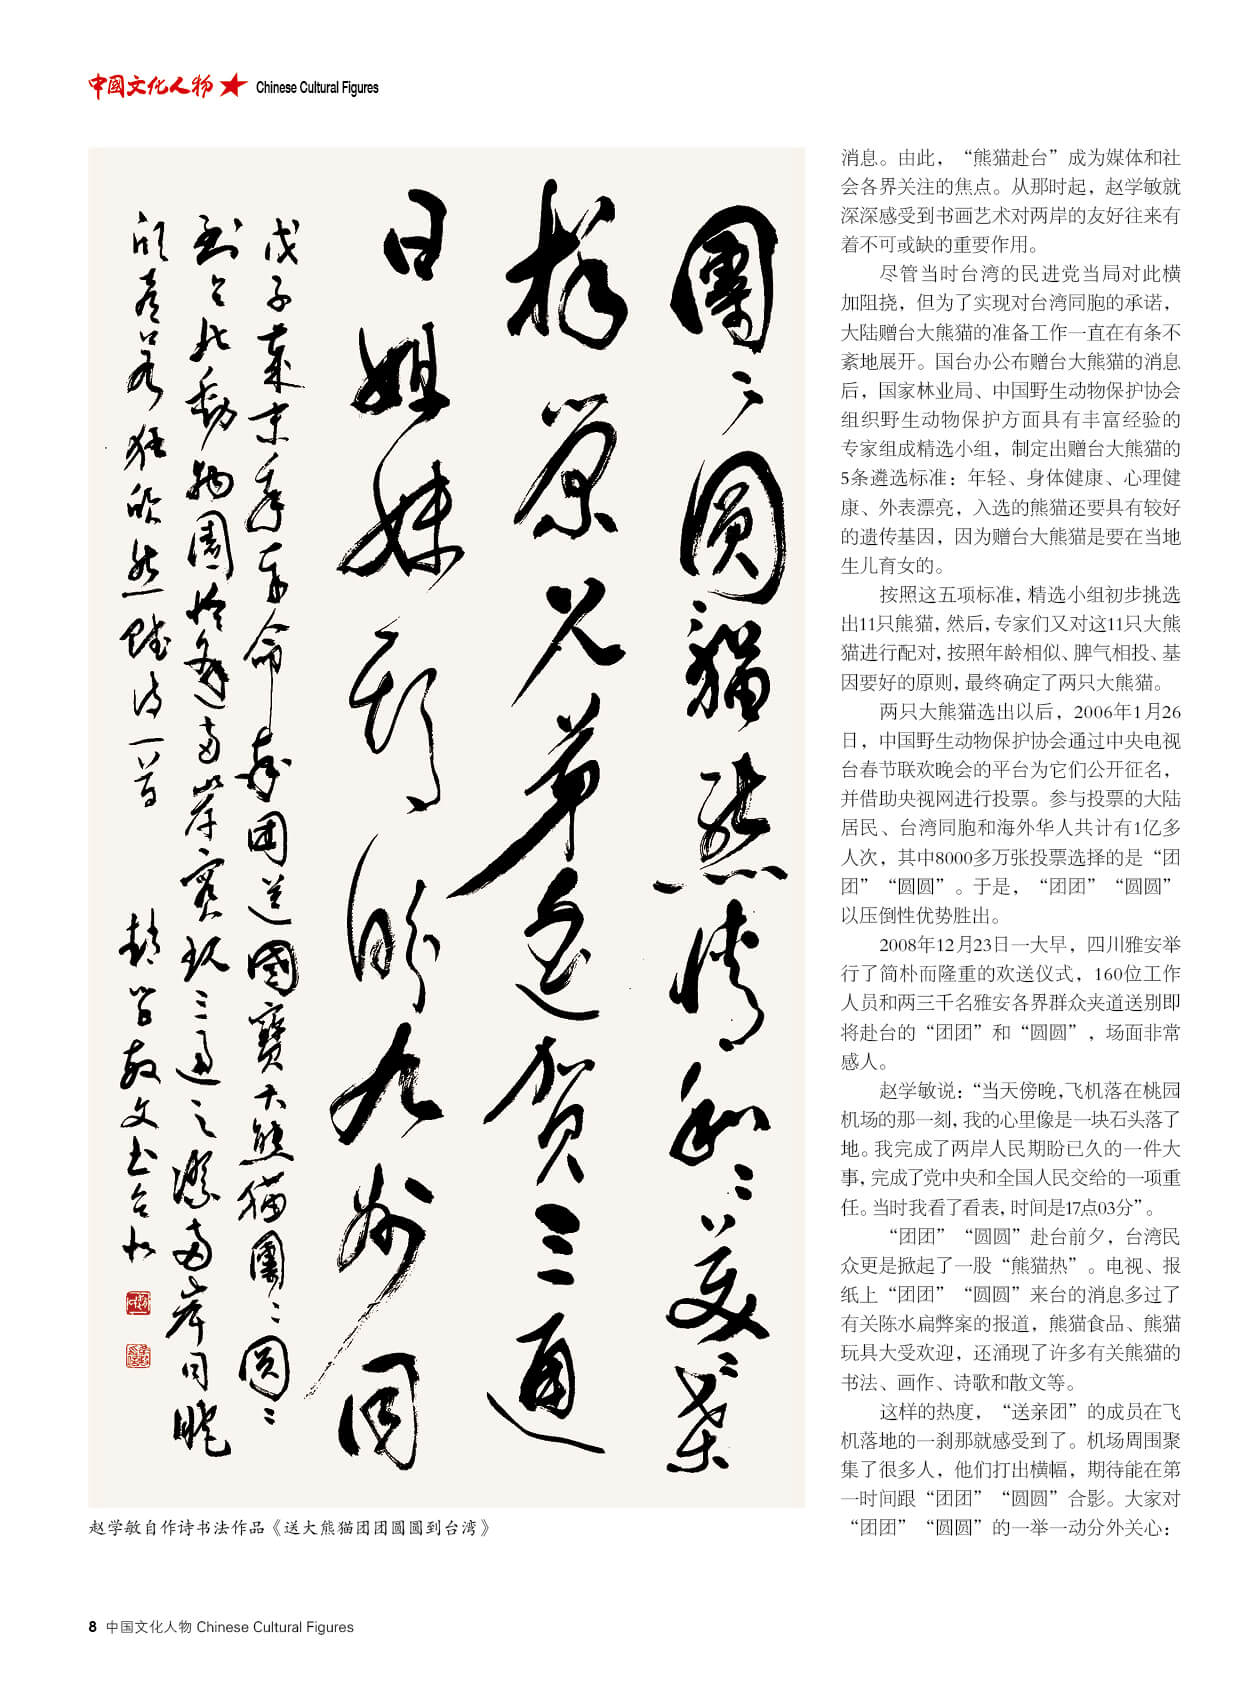 中國文化人物 ★ Chinese Cultural Figures
團〻圓貓熊情和〻美〻葉
根原兄弟遥賀三通
日姐妹期盼九州同
戊子歲末奉命率團送國寶大熊猫團〻圓〻
到台北動物園恰逢两岸實現三通之際两岸同胞
欣喜若狂欣然賦诗一首 趙学敏文书台北
赵学敏自作诗书法作品《送大熊猫团团圆圆到台湾》
消息。由此，“熊猫赴台”成为媒体和社
会各界关注的焦点。从那时起，赵学敏就
深深感受到书画艺术对两岸的友好往来有
着不可或缺的重要作用。
尽管当时台湾的民进党当局对此横
加阻挠，但为了实现对台湾同胞的承诺，
大陆赠台大熊猫的准备工作一直在有条不
紊地展开。国台办公布赠台大熊猫的消息
后，国家林业局、中国野生动物保护协会
组织野生动物保护方面具有丰富经验的
专家组成精选小组，制定出赠台大熊猫的
5条遴选标准：年轻、身体健康、心理健
康、外表漂亮，入选的熊猫还要具有较好
的遗传基因，因为赠台大熊猫是要在当地
生儿育女的。
按照这五项标准，精选小组初步挑选
出11只熊猫，然后，专家们又对这11只大熊
猫进行配对，按照年龄相似、脾气相投、基
因要好的原则，最终确定了两只大熊猫。
两只大熊猫选出以后，2006年1月26
日，中国野生动物保护协会通过中央电视
台春节联欢晚会的平台为它们公开征名，
并借助央视网进行投票。参与投票的大陆
居民、台湾同胞和海外华人共计有1亿多
人次，其中8000多万张投票选择的是“团
团”“圆圆”。于是，“团团”“圆圆”
以压倒性优势胜出。
2008年12月23日一大早，四川雅安举
行了简朴而隆重的欢送仪式，160位工作
人员和两三千名雅安各界群众夹道送别即
将赴台的“团团”和“圆圆”，场面非常
感人。
赵学敏说：“当天傍晚，飞机落在桃园
机场的那一刻，我的心里像是一块石头落了
地。我完成了两岸人民期盼已久的一件大
事，完成了党中央和全国人民交给的一项重
任。当时我看了看表，时间是17点03分”。
“团团”“圆圆”赴台前夕，台湾民
众更是掀起了一股“熊猫热”。电视、报
纸上“团团”“圆圆”来台的消息多过了
有关陈水扁弊案的报道，熊猫食品、熊猫
玩具大受欢迎，还涌现了许多有关熊猫的
书法、画作、诗歌和散文等。
这样的热度，“送亲团”的成员在飞
机落地的一刹那就感受到了。机场周围聚
集了很多人，他们打出横幅，期待能在第
一时间跟“团团”“圆圆”合影。大家对
“团团”“圆圆”的一举一动分外关心：
8 中国文化人物 Chinese Cultural Figures